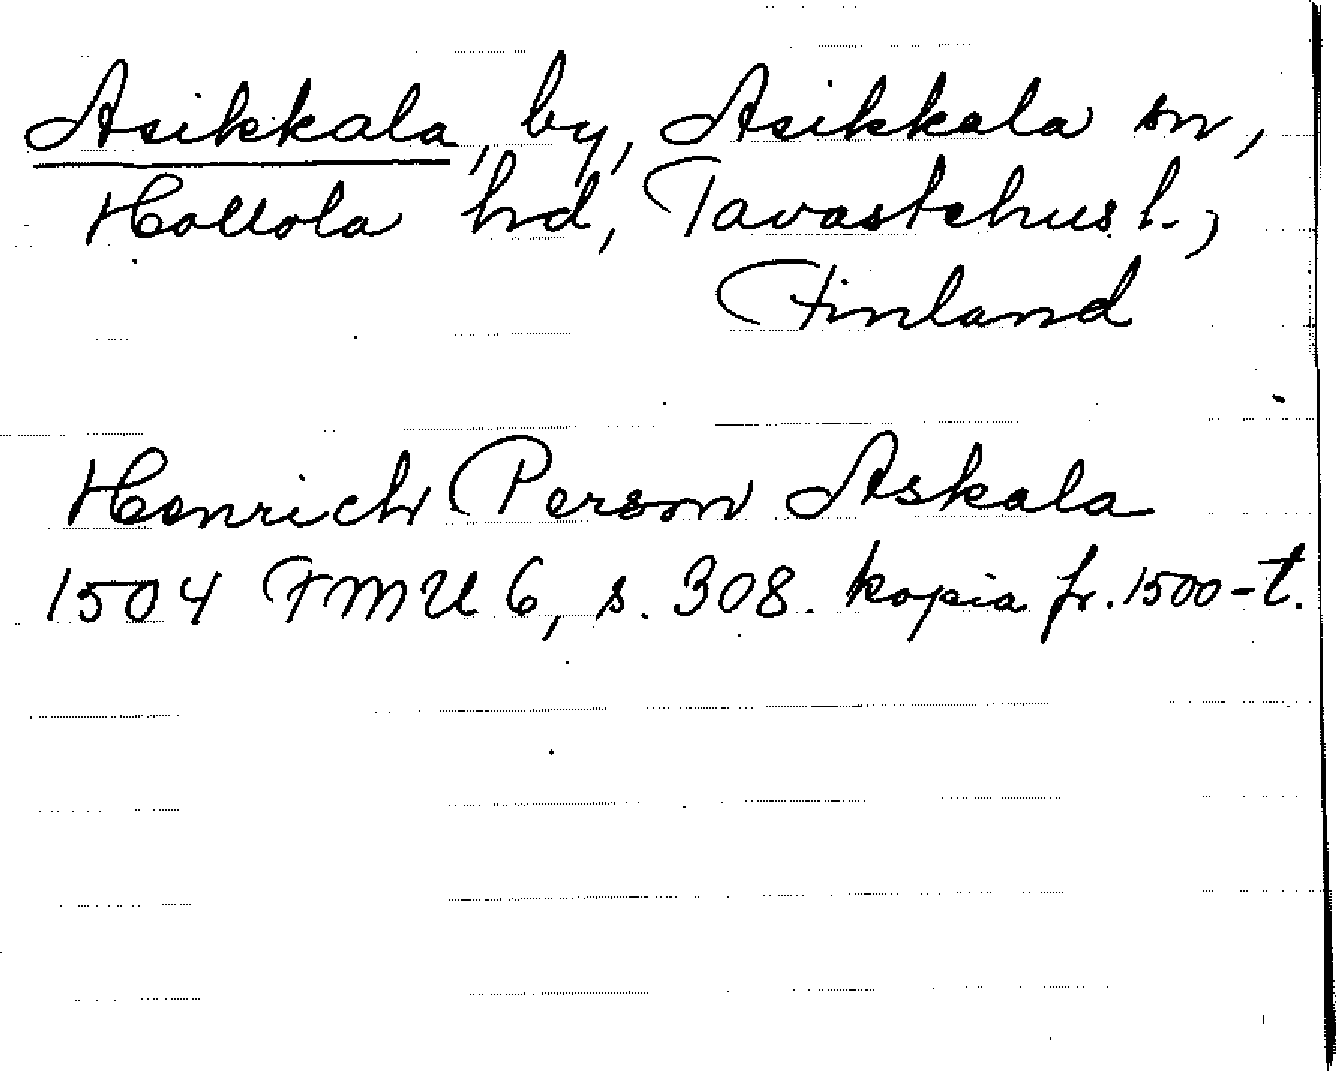 Asikkala, by, Asikkala sn,
Hollola hd, Tavastehus l.,
Finland
Henrich Person Askala
1504 FMU 6, s. 308. kopia fr. 1500-t.